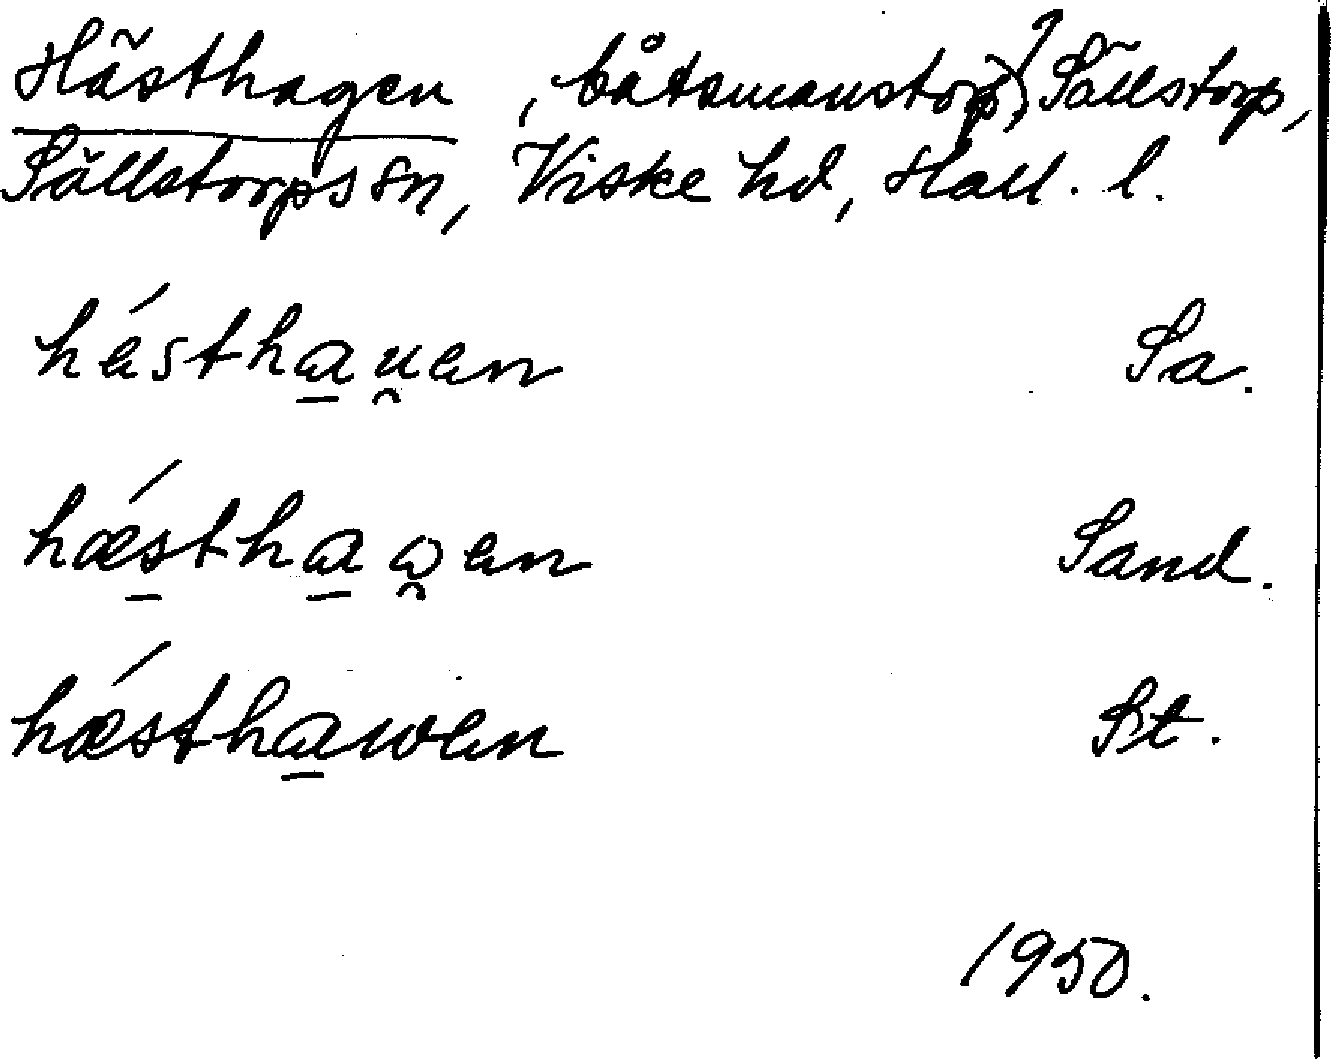 Hästhagen, båtsmanstorp?, Sällstorp,
Sällstorps sn, Viske hd, Hall. l.
héstha̲u̯en Sa.
hǽ̲stha̲ω̯en Sand.
hǽstha̲wen St.
1950.